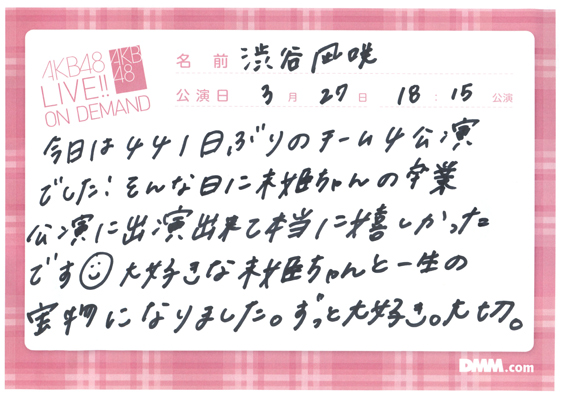 AKB48
LIVE!!
ON DEMAND
AKB
48
名前 渋谷凪咲
公演日 3月27日 18:15公演
今日は441日ぶりのチーム4公演
でした! そんな日に木﨑ちゃんの卒業
公演に出演出来て本当に嬉しかった
です 大好きな木﨑ちゃんと一生の
宝物になりました。ずっと大好き。大切。
DMM.com